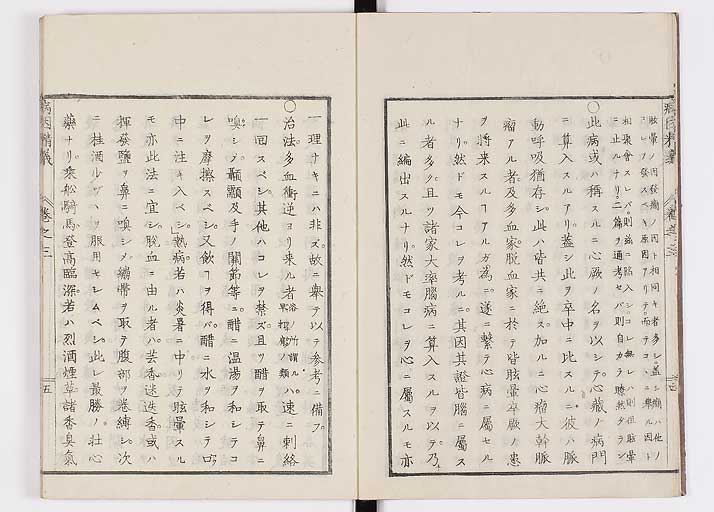 眩暈ノ因發癇ノ因ト相同キ者多シ蓋シ癇ハ他ノ
相聚會スレバ則玆ニ陷入シコレ無レバ則但眩暈
ニ止ルナリ二篇ヲ通考セバ則自カラ瞭然タラン
○此病或ハ稱スルニ心厥ノ名ヲ以シテ心藏ノ病門
ニ算入スルアリ蓋シ此ヲ卒中ニ比スルニ彼ハ脈
動呼吸猶存シ此ハ皆共ニ絶ス加ルニ心瘤大幹脈
瘤アル者及多血家脱血家ニ於テ皆眩暈卒厥ノ患
ヲ將來スルヿアルガ為ニ遂ニ繫テ心病ニ屬セル
ナリ然ドモ今コレヲ考ルニ其因其證皆腦ニ屬ス
ル者多ク且ツ諸家大率腦病ニ算入スルヲ以テ乃
此ニ編出スルナリ然ドモコレヲ心ニ屬スルモ亦
病因精義 卷之三 五
一理ナキニハ非ズ故ニ擧テ以テ參考ニ備フ
○治法多血衝逆ヨリ來ル者ハ速ニ刺絡
一回スベシ其他ハコレヲ禁ズ且ツ醋ヲ取テ鼻ニ
嗅シメ顳顬及手ノ關節等ニ醋ニ温湯ヲ和シテコ
レヲ摩擦スベシ又飲ヿヲ得バ醋ニ水ヲ和シテ口
中ニ注キ入ベシ熱病若ハ炎暑ニ中リテ眩暈スル
モ亦此法ニ宜シ脱血ニ由ル者ハ芸香迷迭香或ハ
揮發鹽ヲ鼻ニ嗅シメ繃帶ヲ取テ腹部ヲ卷縛シ次
ニ桂酒ルヲ服用セシムベシ此レ最勝ノ壯心
藥ナリ乘舩騎馬登高臨深若ハ烈酒煙草諸香臭氣